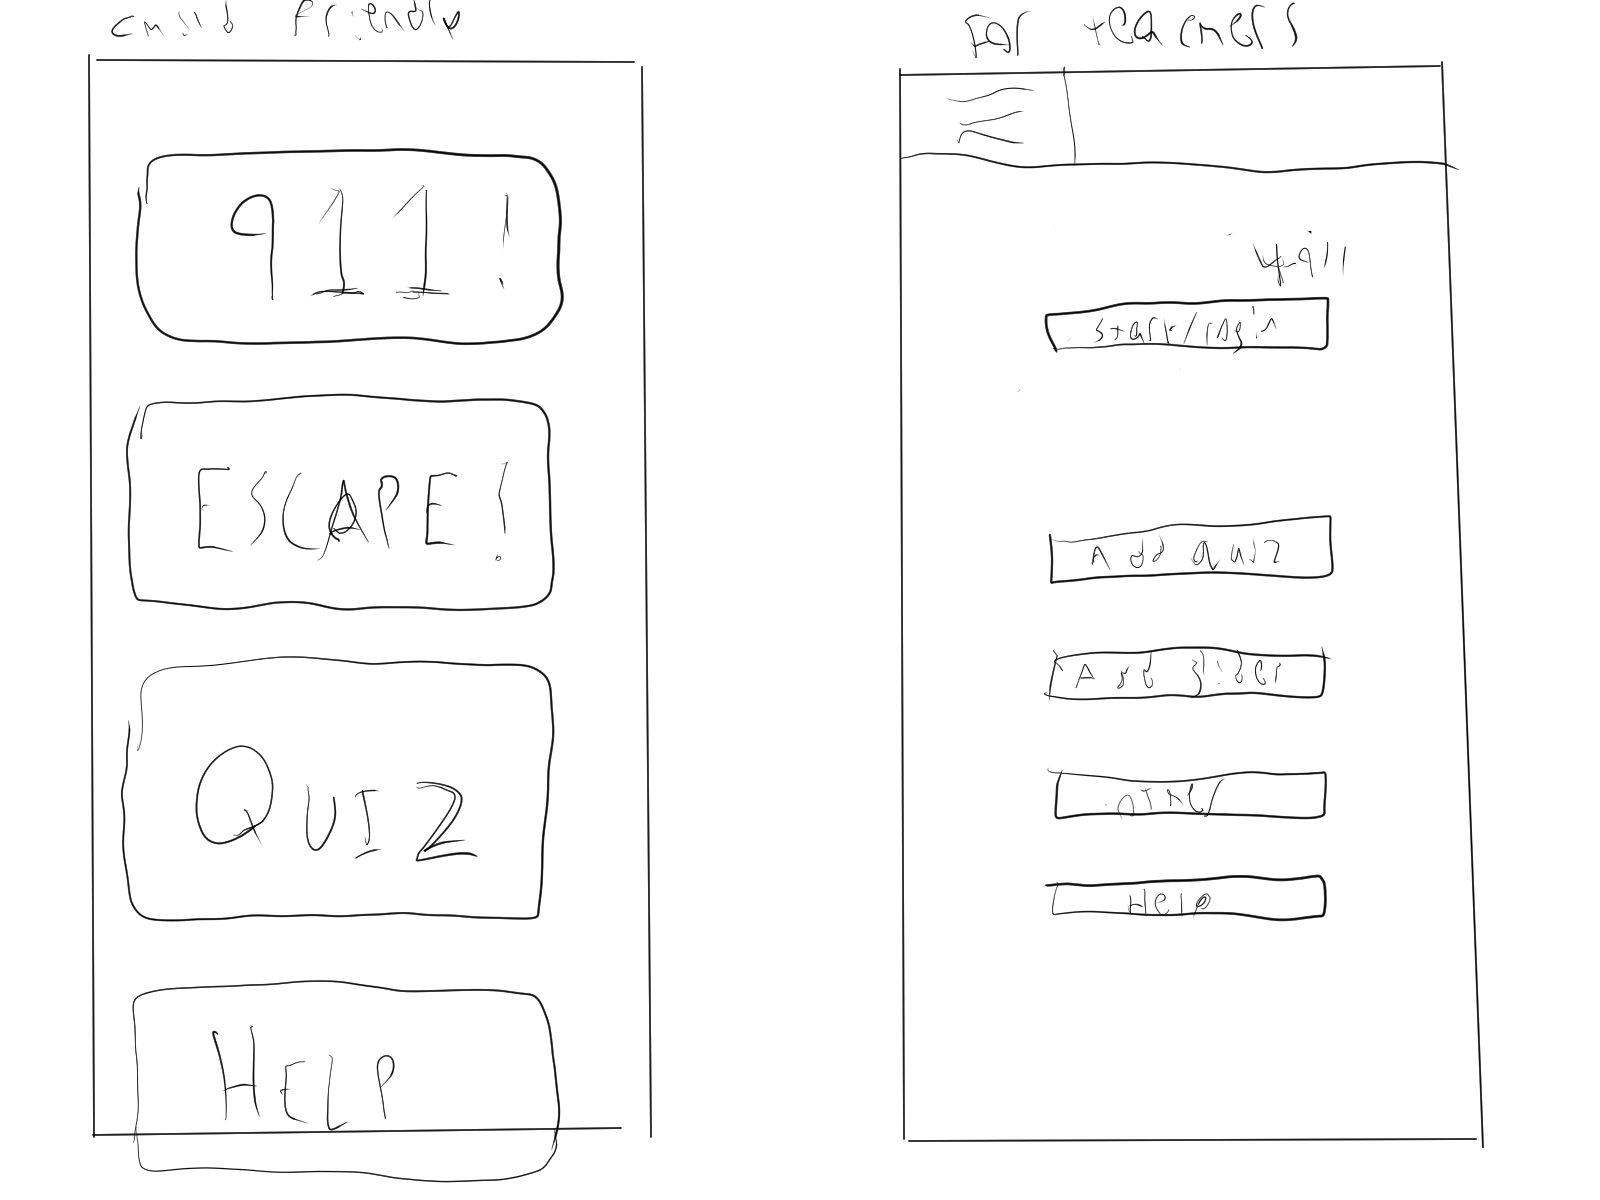 child friendly
911!
ESCAPE!
QUIZ
HELP
For teachers
start/login
Add quiz
Add
other
Help